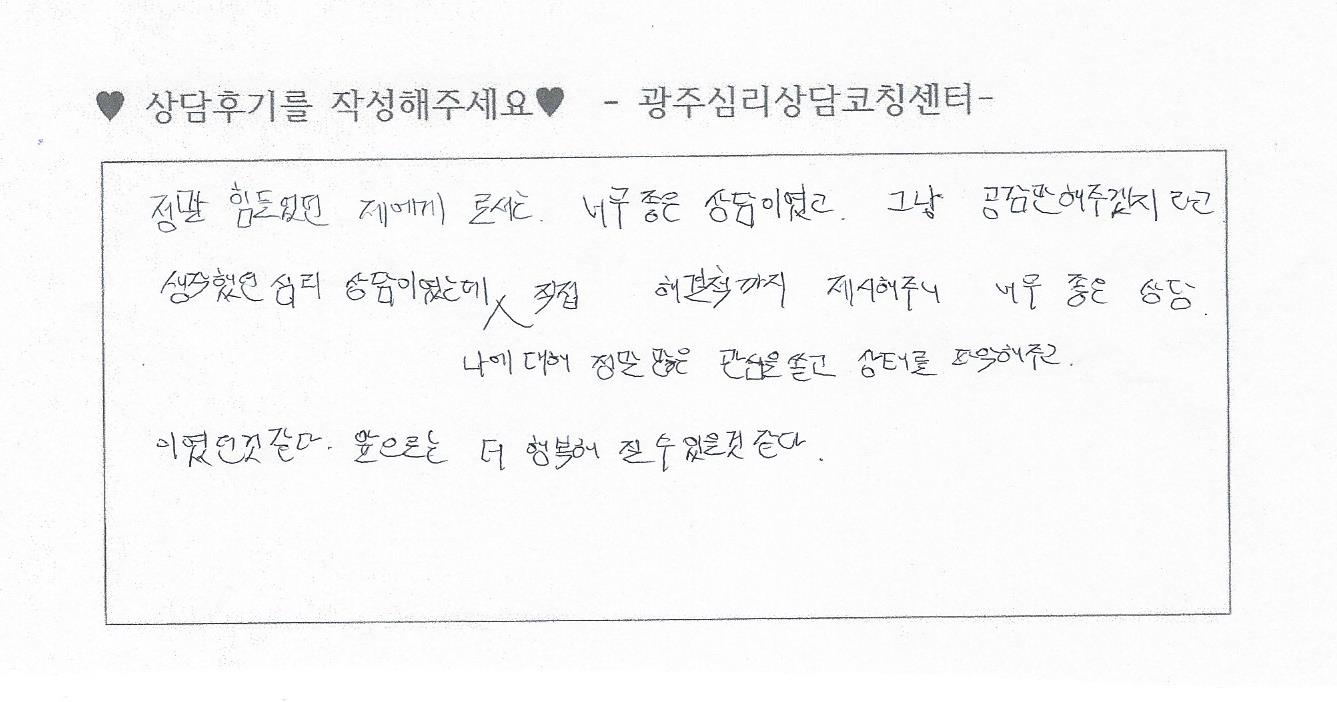 ♥ 상담후기를 작성해주세요♥ - 광주심리상담코칭센터-
정말 힘들었던 제에게 로서는. 너무 좋은 상담이였고. 그냥 공감만해주겠지 라고
생각했던 심리 상담이였는데 직접 해결책까지 제시해주니 너무 좋은 상담.
나에 대해 정말 많은 관심을 쏟고 상태를 파악해주고.
이였던것같다. 앞으로는 더 행복해 질 수 있을것 같다.